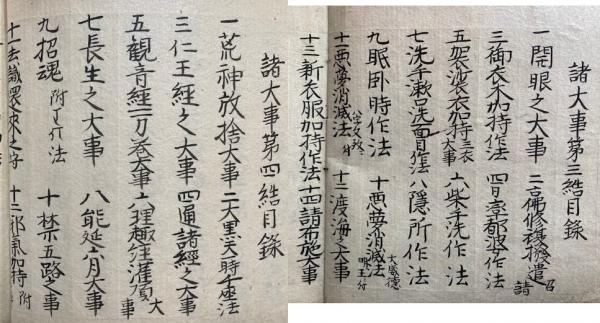 諸大事第三結目録
一開眼之大事 二古佛修複撥遣 召請
三御衣木加持作法 四日率都波作法
五袈裟衣加持三衣大事 六柴手洗作法
七洗手漱口洗面目作法 八隠所作法
九眠臥時作法 十悪夢消滅法 大威徳
十一悪夢消滅法 十二渡海之大事
十三新衣服加持作法 十四請布施大事
諸大事第四結目録
一荒神放捨大事 二大黒天時千座法
三仁王経之大事 四通諸経之大事
五観音経一万巻大事 六理趣経灌頂大事
七長生之大事 八能延六月大事
九招魂 附作法 十禁五路之事
十一去識還来之守 十二邪氣加持 附